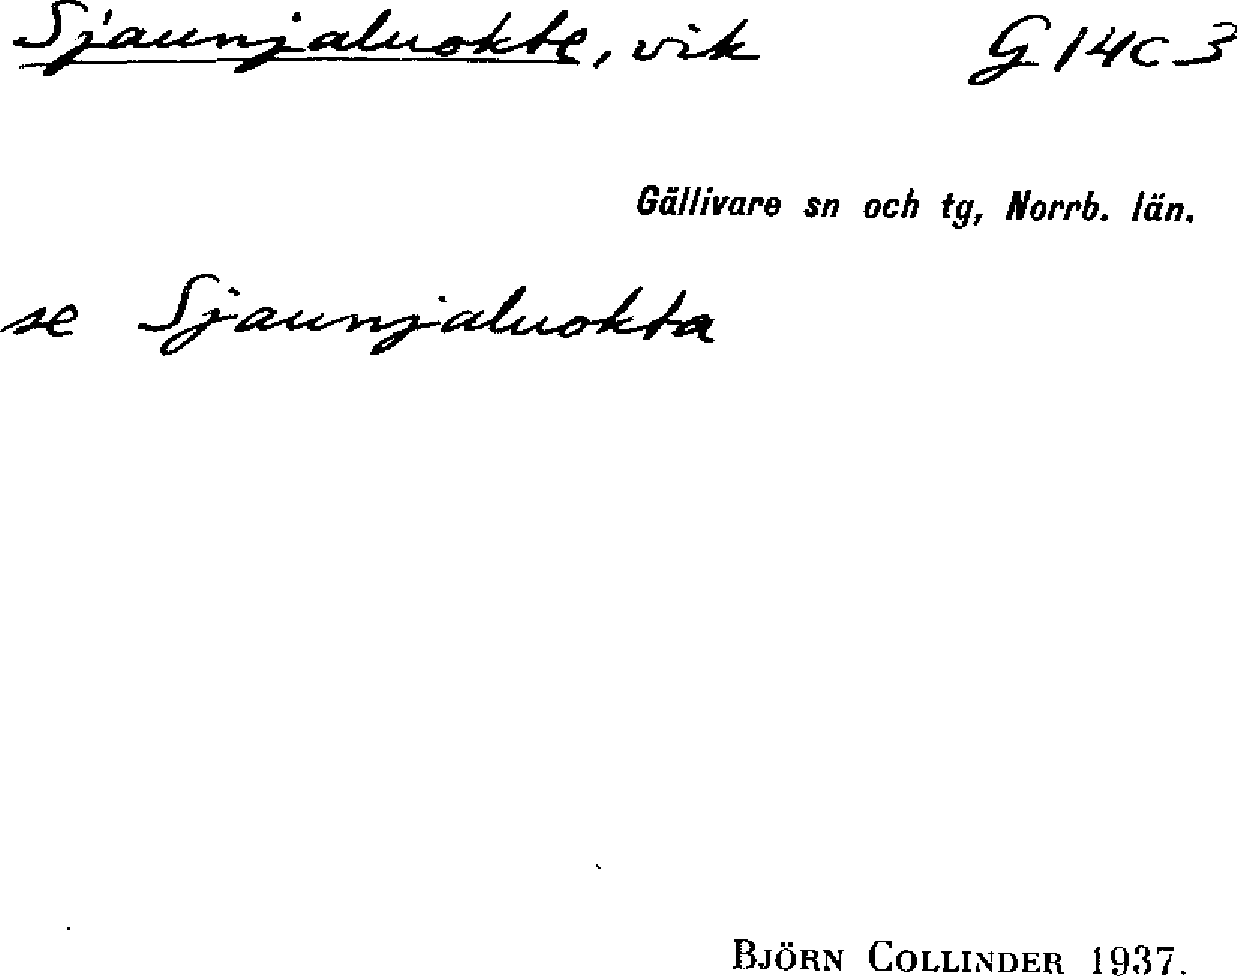 Sjaunjaluokte, vik G 14c 3
Gällivare sn och tg, Norrb. län.
se Sjaunjaluokta
BJÖRN COLLINDER 1937.